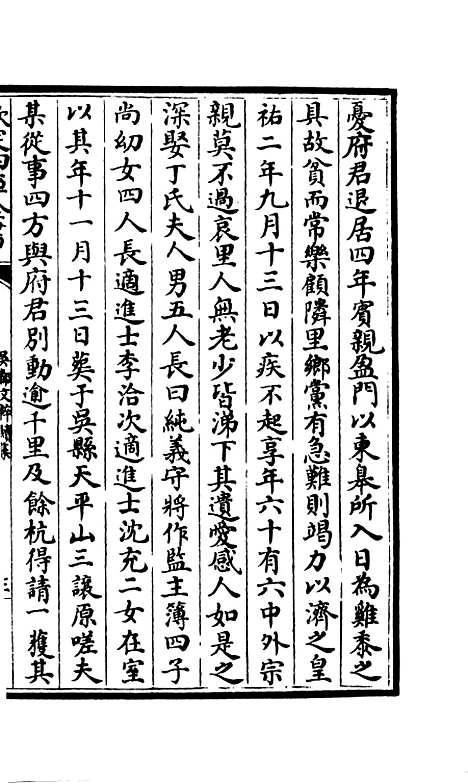 憂府君退居四年賓親盈門以東臯所入日為雞黍之
具故貧而常樂顧隣里鄉黨有急難則竭力以濟之皇
祐二年九月十三日以疾不起享年六十有六中外宗
親莫不過哀里人無老少皆涕下其遺愛感人如是之
深娶丁氏夫人男五人長曰純義守將作監主簿四子
尚幼女四人長適進士李洽次適進士沈充二女在室
以其年十一月十三日葬于吳縣天平山三讓原嗟夫
某從事四方與府君別動逾千里及餘杭得請一獲其
吳都文粹續集